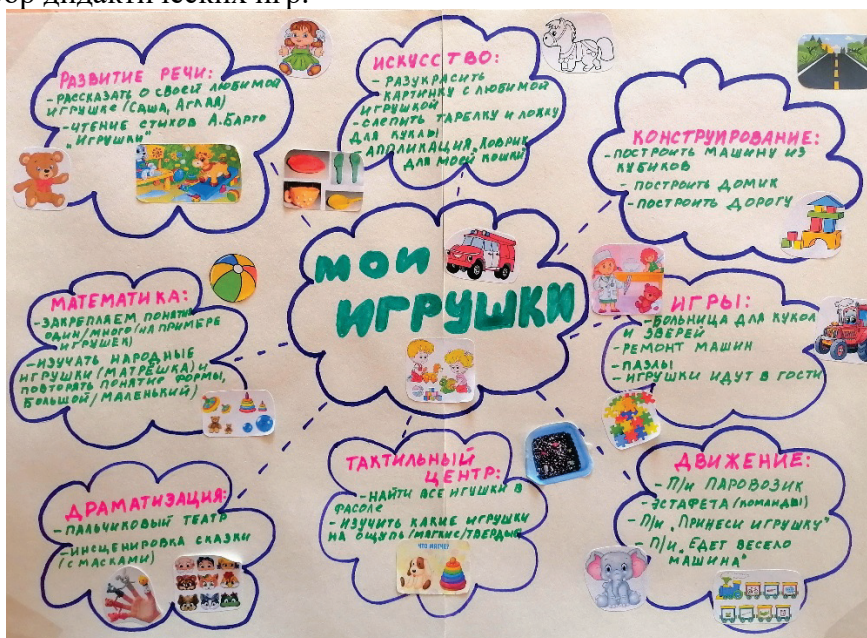 ор дидактических игр.
РАЗВИТИЕ РЕЧИ:
-РАССКАЗАТЬ О СВОЕЙ ЛЮБИМОЙ
ИГРУШКЕ (САША, АГЛАЯ)
-ЧТЕНИЕ СТИХОВ А.БАРТО
"ИГРУШКИ"
ИСКУССТВО:
-РАЗУКРАСИТЬ
КАРТИНКУ С ЛЮБИМОЙ
ИГРУШКОЙ
-СЛЕПИТЬ ТАРЕЛКУ И ЛОЖКУ
ДЛЯ КУКЛЫ
-АППЛИКАЦИЯ "КОВРИК
ДЛЯ МОЕЙ КОШКИ"
КОНСТРУИРОВАНИЕ:
-ПОСТРОИТЬ МАШИНУ ИЗ
КУБИКОВ
- ПОСТРОИТЬ ДОМИК
-ПОСТРОИТЬ ДОРОГУ
МОИ
ИГРУШКИ
МАТЕМАТИКА:
-ЗАКРЕПЛЯЕМ ПОНЯТИЕ
ОДИН/МНОГО (НА ПРИМЕРЕ
ИГРУШЕК)
-ИЗУЧАТЬ НАРОДНЫЕ
ИГРУШКИ (МАТРЁШКА) И
ПОВТОРЯТЬ ПОНЯТИЕ ФОРМЫ,
БОЛЬШОЙ/МАЛЕНЬКИЙ)
ИГРЫ:
-БОЛЬНИЦА ДЛЯ КУКОЛ
И ЗВЕРЕЙ
-РЕМОНТ МАШИН
-ПАЗЛЫ
-ИГРУШКИ ИДУТ В ГОСТИ
ДРАМАТИЗАЦИЯ:
-ПАЛЬЧИКОВЫЙ ТЕАТР
-ИНСЦЕНИРОВКА СКАЗКИ
(С МАСКАМИ)
ТАКТИЛЬНЫЙ
ЦЕНТР:
-НАЙТИ ВСЕ ИГУШКИ В
ФАСОЛЕ
-ИЗУЧИТЬ КАКИЕ ИГРУШКИ
НА ОЩУПЬ/МЯГКИЕ/ТВЕРДЫЕ
ЧТО МЯГЧЕ?
ДВИЖЕНИЕ:
- П/И ПАРОВОЗИК
-ЭСТАФЕТА (КОМАНДЫ)
-П/И "ПРИНЕСИ ИГРУШКУ"
- П/И "ЕДЕТ ВЕСЕЛО
МАШИНА"